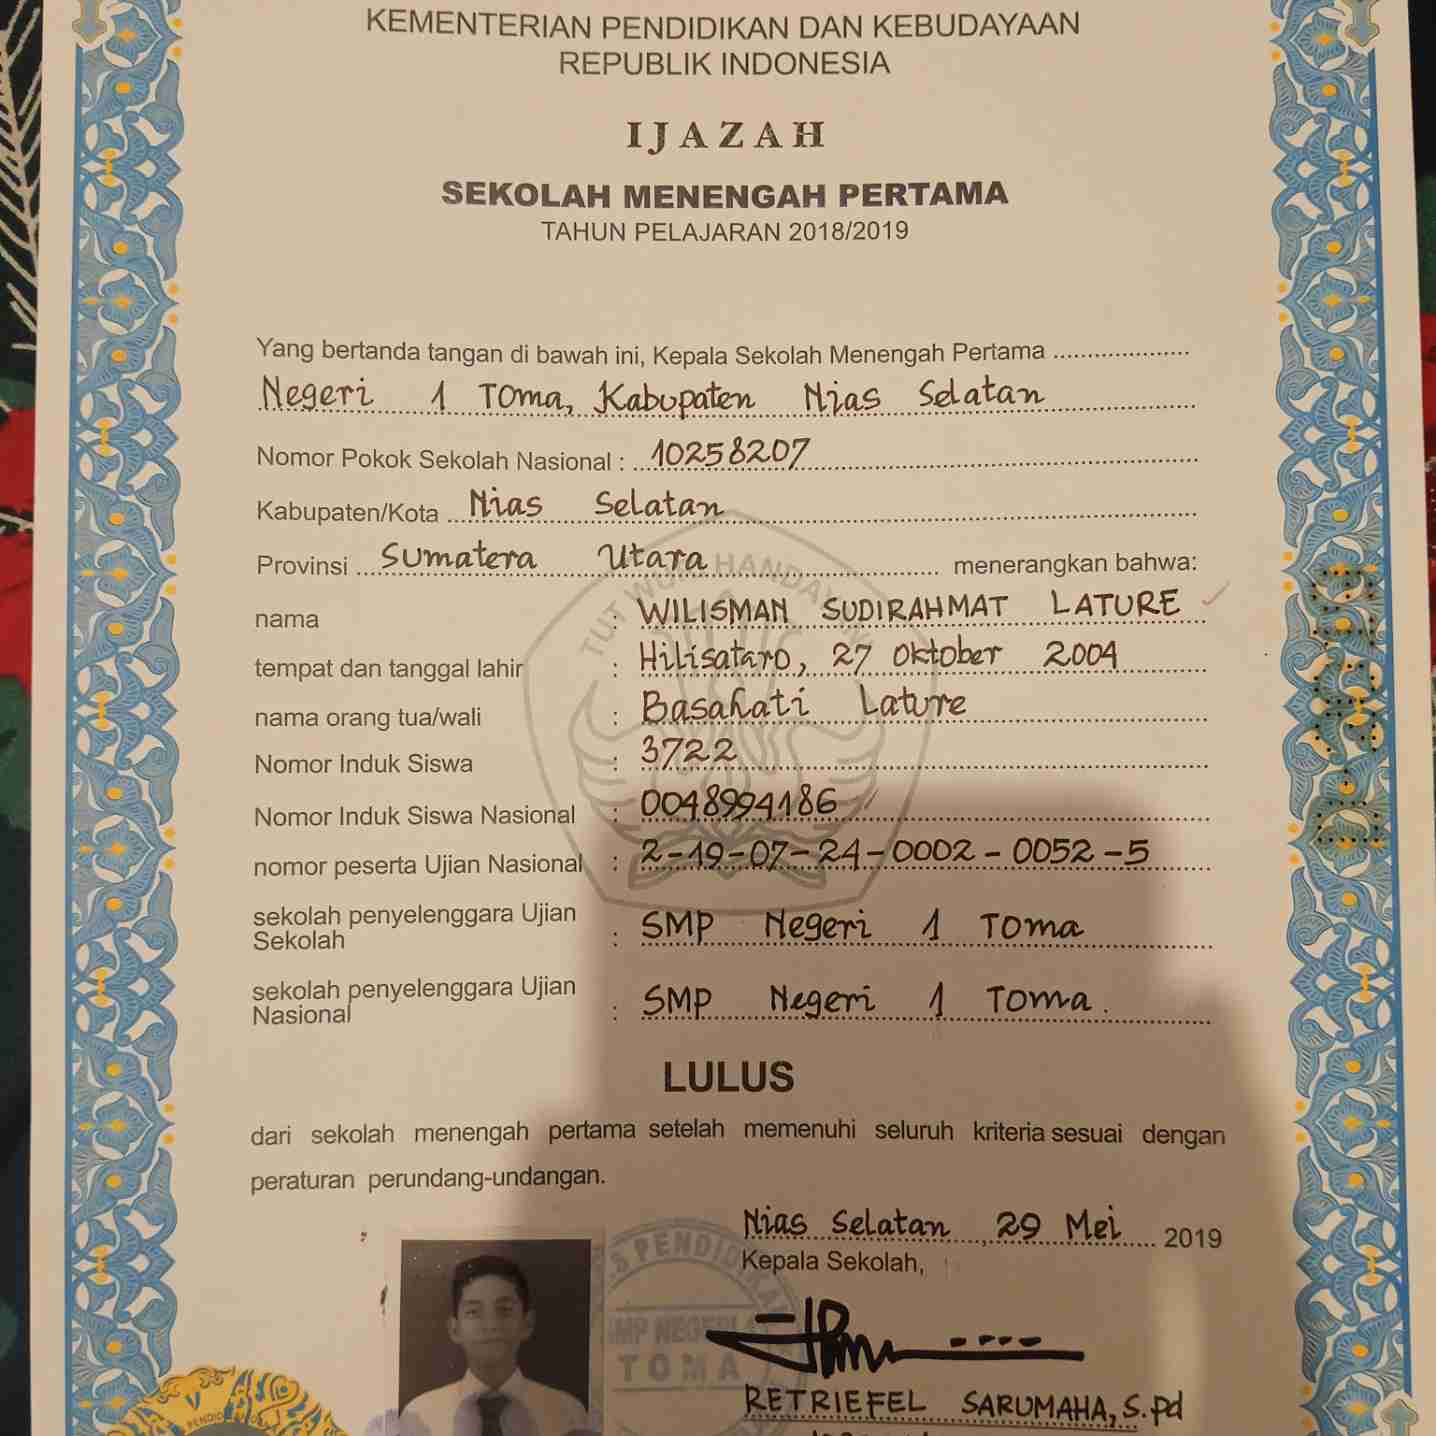 KEMENTERIAN PENDIDIKAN DAN KEBUDAYAAN
REPUBLIK INDONESIA
IJAZAH
SEKOLAH MENENGAH PERTAMA
TAHUN PELAJARAN 2018/2019
Yang bertanda tangan di bawah ini, Kepala Sekolah Menengah Pertama
Negeri 1 Toma, Kabupaten Nias Selatan
Nomor Pokok Sekolah Nasional : 10258207
Kabupaten/Kota Nias Selatan
Provinsi Sumatera Utara menerangkan bahwa:
nama : WILISMAN SUDIRAHMAT LATURE
tempat dan tanggal lahir : Hilisataro, 27 Oktober 2004
nama orang tua/wali : Basahati Lature
Nomor Induk Siswa : 3722
Nomor Induk Siswa Nasional : 0048994186
nomor peserta Ujian Nasional : 2-19-07-24-0002-0052-5
sekolah penyelenggara Ujian
Sekolah : SMP Negeri 1 Toma
sekolah penyelenggara Ujian
Nasional : SMP Negeri 1 Toma.
TUT WURI HANDAYANI
LULUS
dari sekolah menengah pertama setelah memenuhi seluruh kriteria sesuai dengan
peraturan perundang-undangan.
Nias Selatan, 29 Mei 2019
Kepala Sekolah,
TOMA
RETRIEFEL SARUMAHA, S.Pd